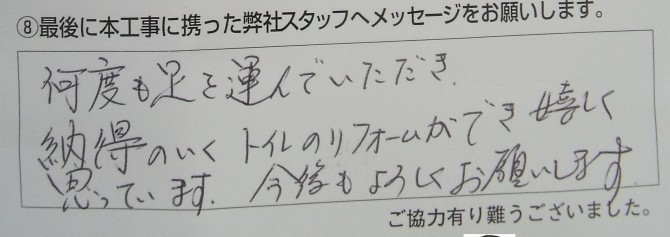 ⑧最後に本工事に携った弊社スタッフへメッセージをお願いします。
何度も足を運んでいただき、
納得のいくトイレのリフォームができ嬉しく
思っています。今後もよろしくお願いします。
ご協力有り難うございました。